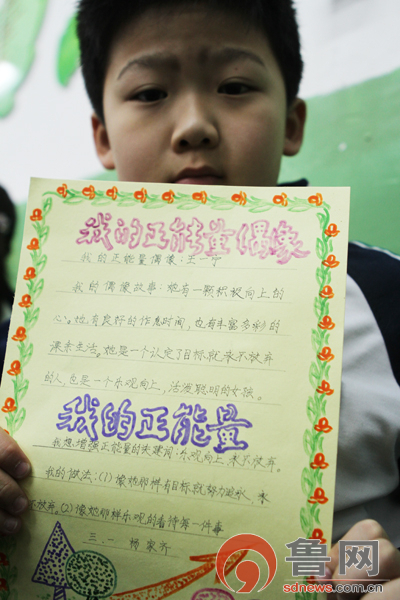 我的正能量偶像
我的正能量偶像:王一
我的偶像故事:她有一颗积极向上的
心。她有良好的作息时间,也有丰富多彩的
课余生活。她是一个认定了目标就永不放弃
的人,也是一个乐观向上,活泼聪明的女孩。
我的正能量
我想增强正能量的关键词:乐观向上 永不放弃。
我的做法:(1)像她那样有目标就努力追求,永
不放弃。(2)像她那样乐观的看待每一件事
三.一 杨家齐
鲁网
sdnews.com.cn